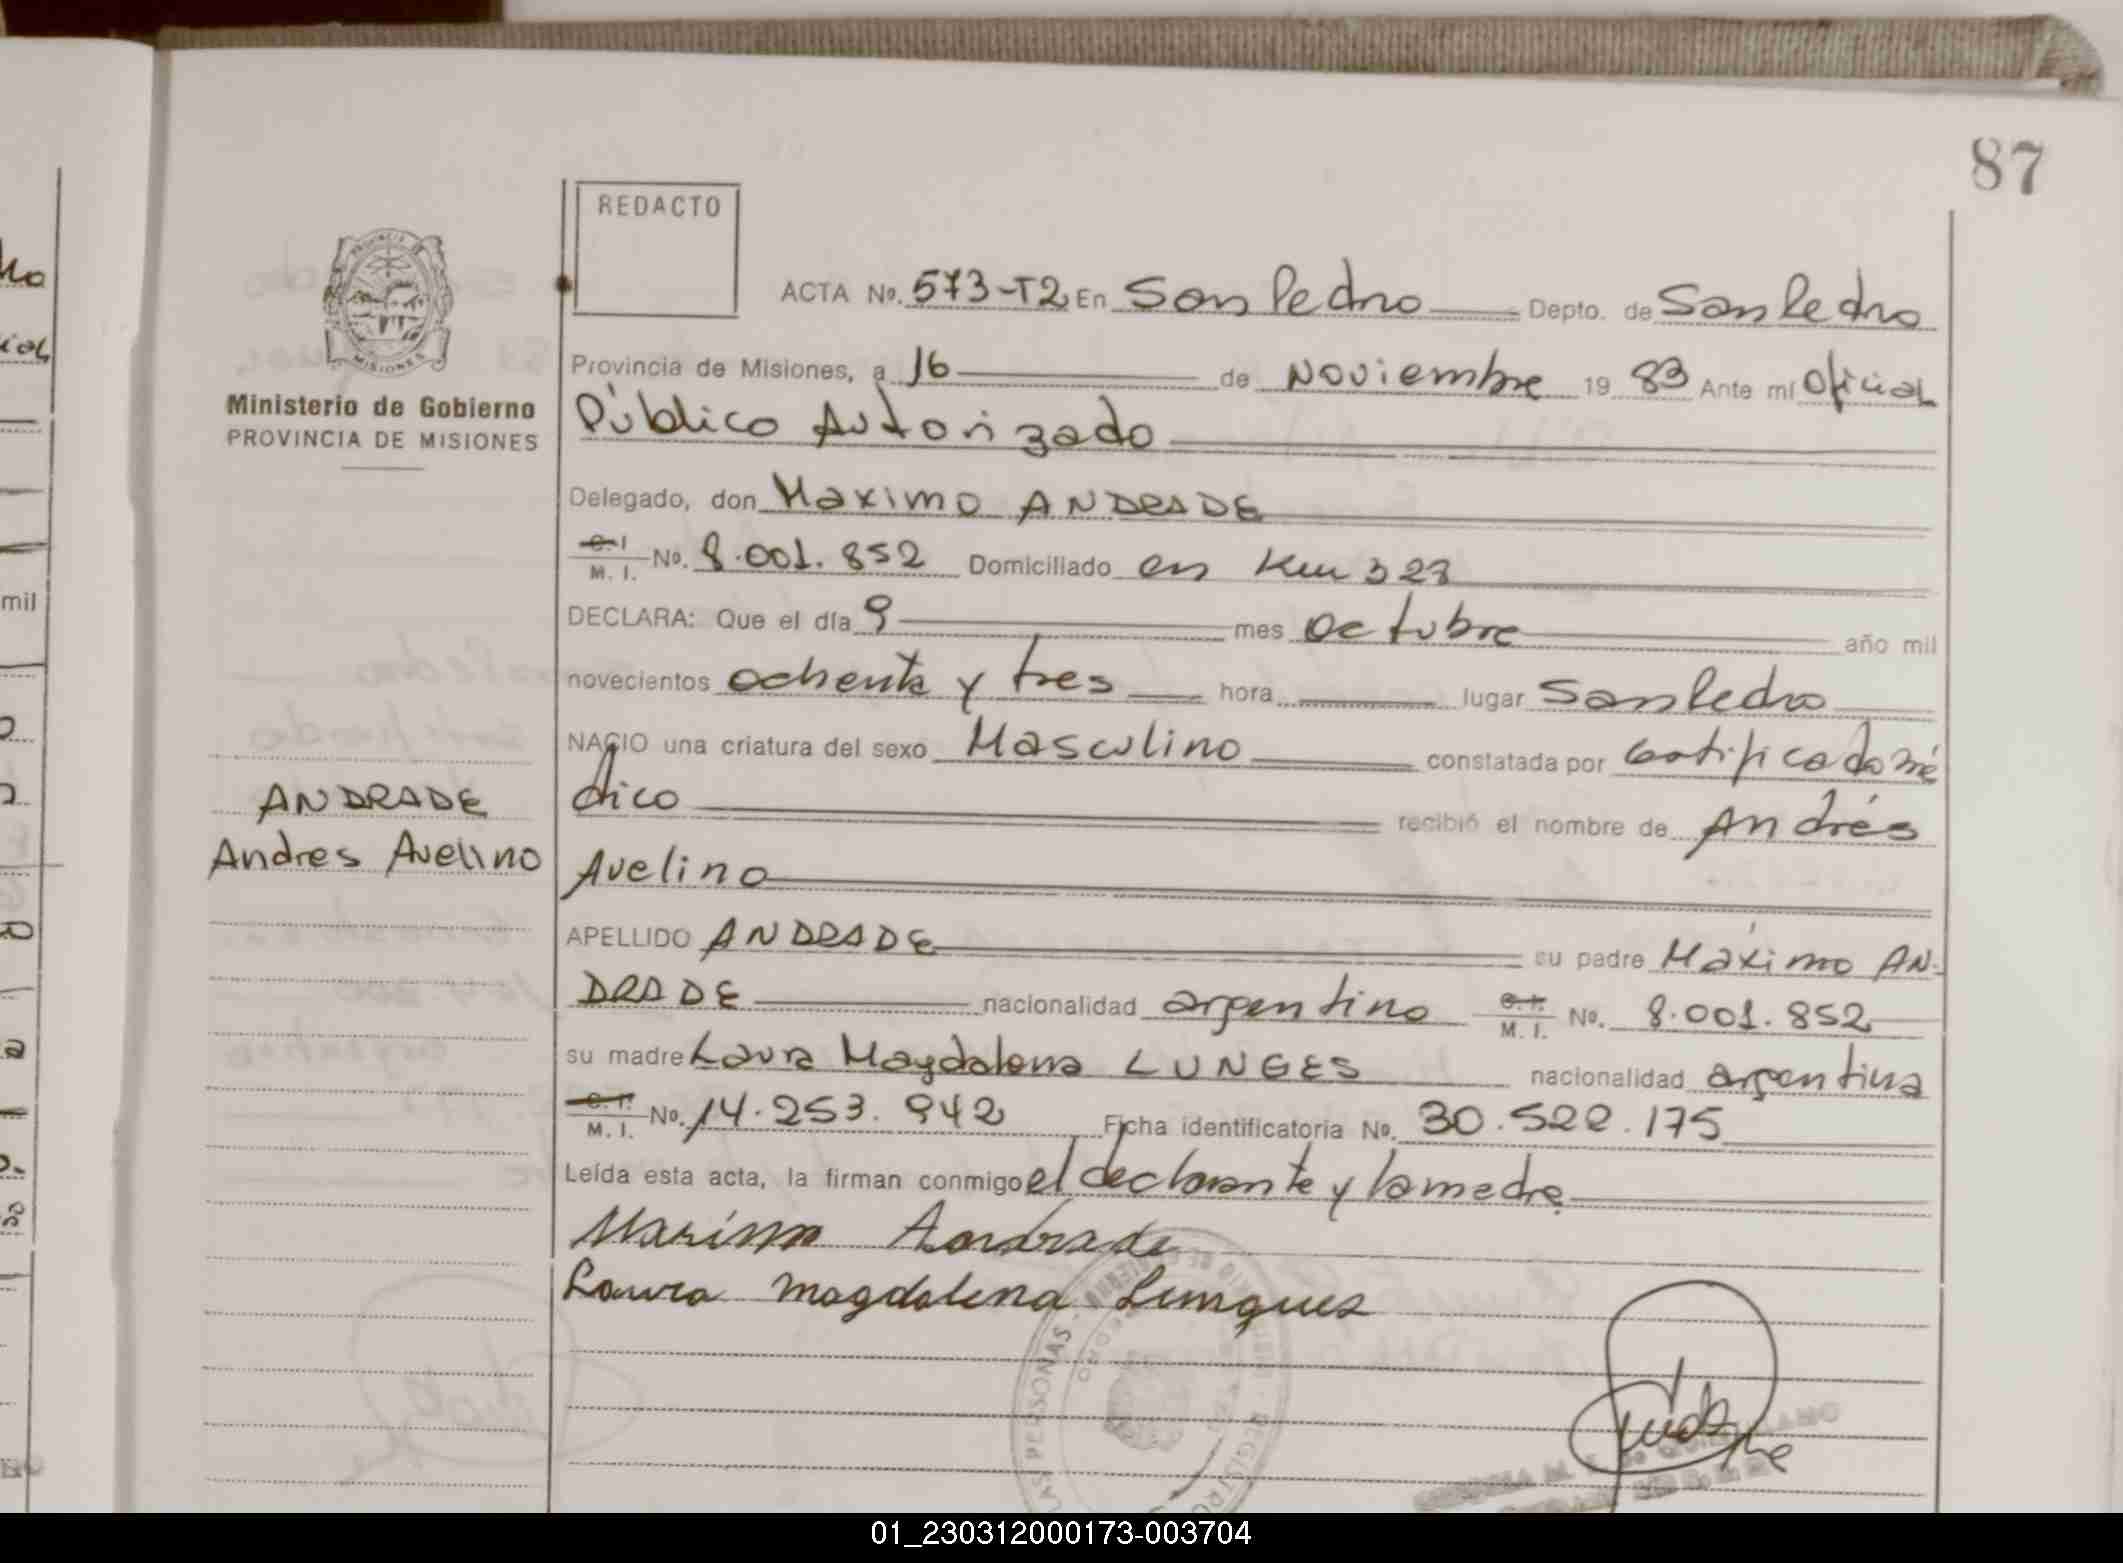 87
REDACTO
ACTA No. 573-T2 En San Pedro Depto. de San Pedro
Provincia de Misiones, a 16 de Noviembre 19 83 Ante mí Oficial
Ministerio de Gobierno
PROVINCIA DE MISIONES
MISIONES
Público Autorizado
Delegado, don Maximo ANDRADE
C.I. M. I. No. 8.001.852 Domiciliado en Km 323
DECLARA: Que el día 9 mes octubre año mil
novecientos ochenta y tres hora lugar San Pedro
NACIO una criatura del sexo Masculino constatada por Certificado mé
dico recibió el nombre de Andrés
ANDRADE
Andres Avelino
Avelino
APELLIDO ANDRADE su padre Máximo AN-
DRADE nacionalidad argentino C.I. M. I. No. 8.001.852
su madre Laura Magdalena LUNGES nacionalidad argentina
C.I. M. I. No. 14.253.942 Ficha identificatoria No. 30.522.175
Leída esta acta, la firman conmigo el declarante y la madre
Maximo Andrade
Laura Magdalena Lungues
PERSONAS
01_230312000173-003704